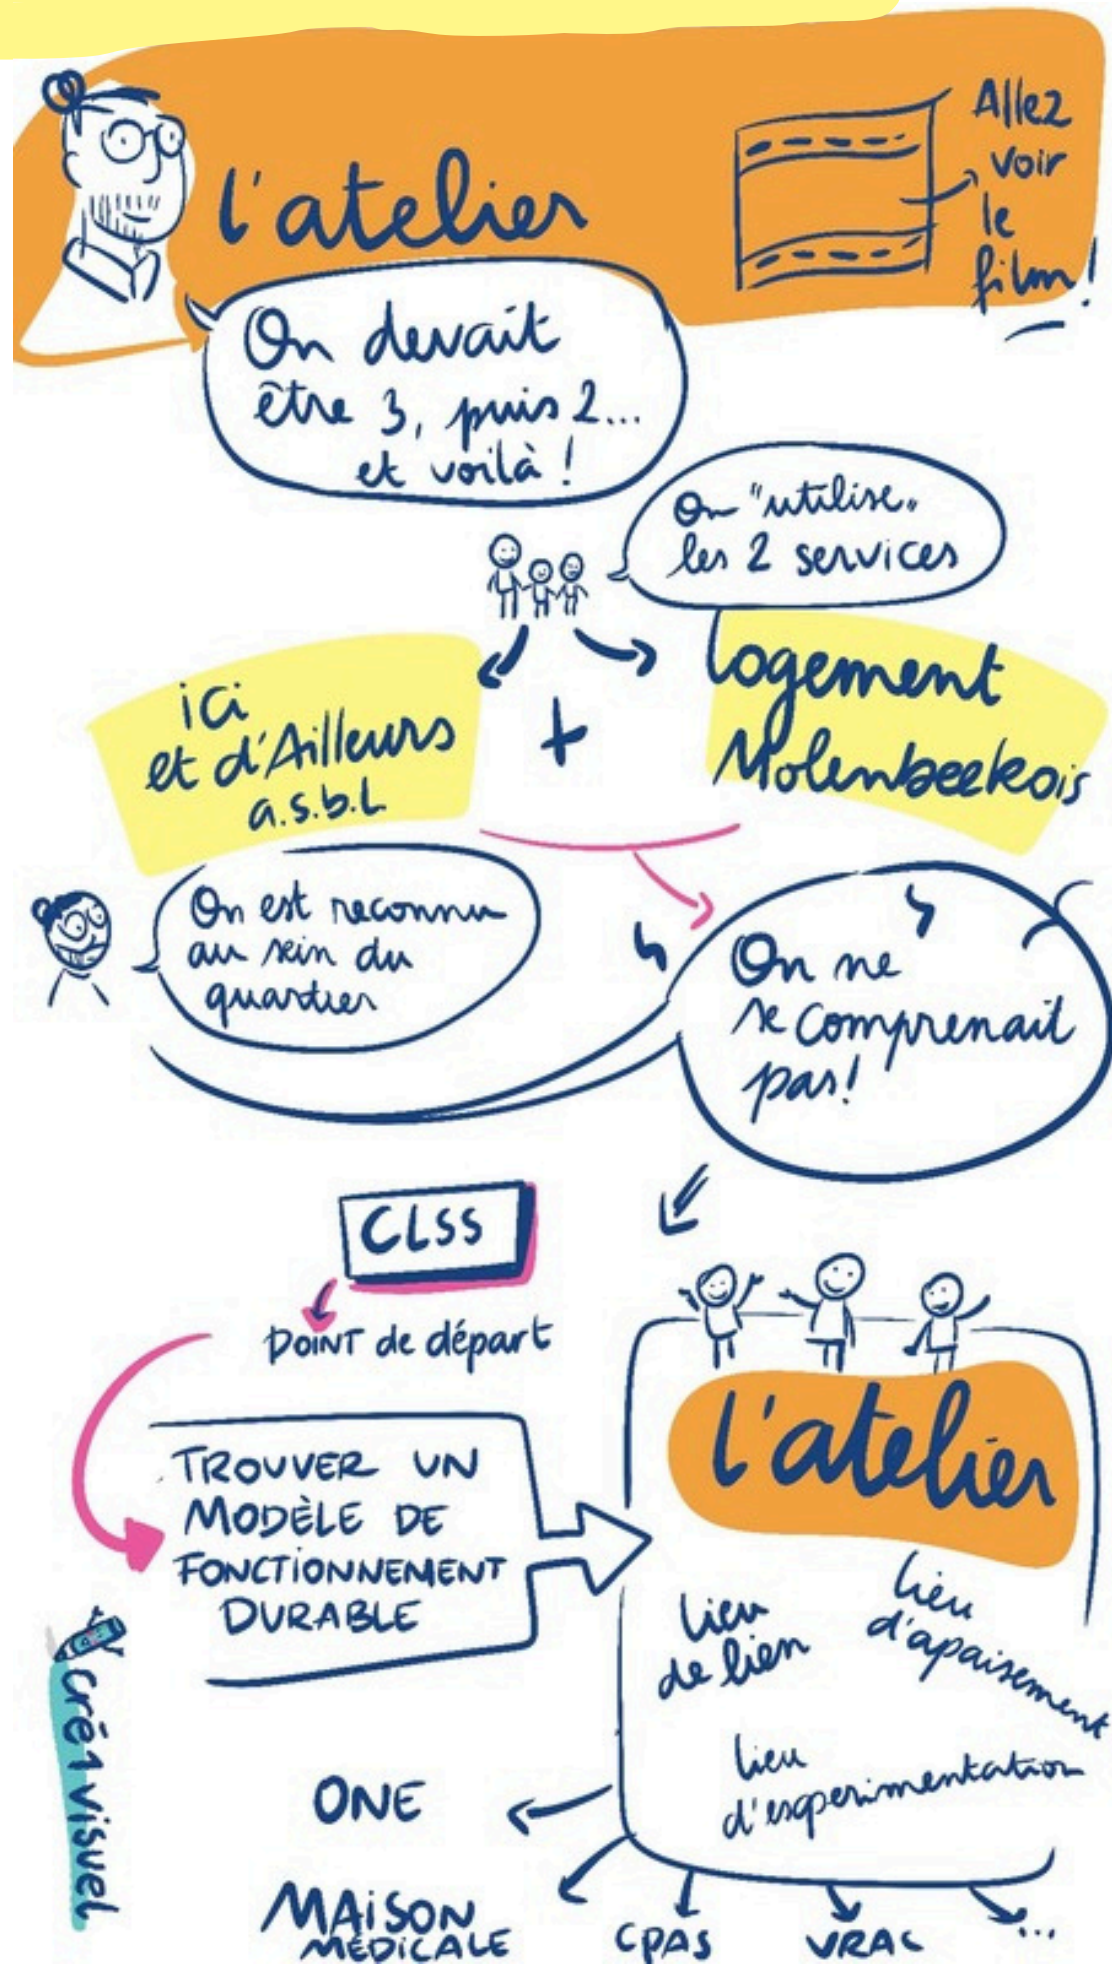 l'atelier
Allez
voir
le
film!
On devait
être 3, puis 2...
et voilà !
On "utilise"
les 2 services
ici
et d'Ailleurs
a.s.b.L
+
logement
Molenbeekois
On est reconnu
au sein du
quartier
On ne
se comprenait
pas!
CLSS
POINT de départ
TROUVER UN
MODÈLE DE
FONCTIONNEMENT
DURABLE
l'atelier
lieu
de lien
lieu
d'apaisement
lieu
d'experimentation
ONE
MAISON
MÉDICALE
CPAS
VRAC
...
cré1visuel